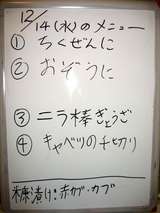 12/14(水)のメニュー
① ちくぜんに
② おぞうに
③ ニラ棒ぎょうざ
④ キャベツの千切り
糠漬け:赤かぶ・カブ